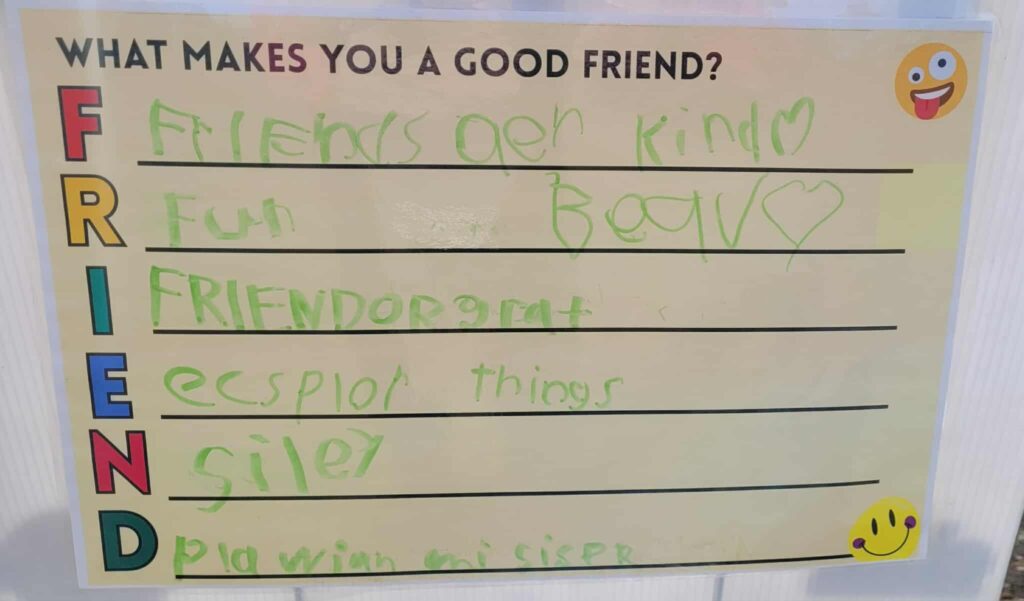 WHAT MAKES YOU A GOOD FRIEND?
F FriENds aer kind
R Fun Beqv
I FRIENDORgrat
E ecsplor things
N siley
D pla wian mi sispr